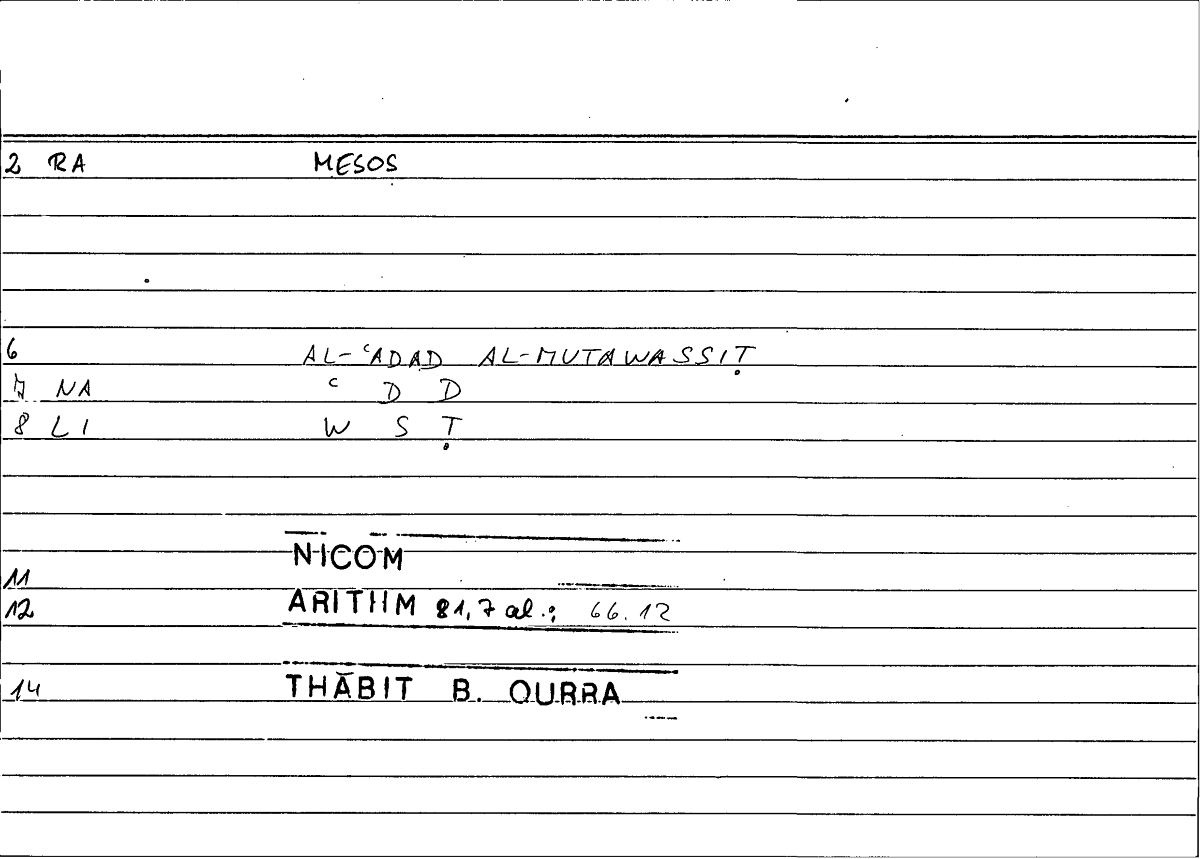 2 RA MESOS
6 AL-ʿADAD AL-MUTAWASSIṬ
7 NA ʿ D D
8 LI W S Ṭ
NICOM
11
12 ARITHM 81,7 al.; 66.12
14 THĀBIT B. QURRA